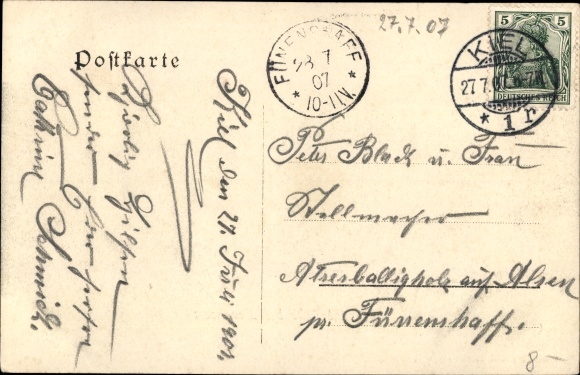 27.7.07
5
DEUTSCHES REICH
KIEL
27.7.07
* 1 r
FÜNENSHAFF
28 7
07
* 10-11V. *
Postkarte
Kiel den 27. Juli 1907.
Cathrine Schmidt.
Peter Black u. Frau
Stellmacher
Atzerballigholz auf Alsen
pr. Fünenshaff.
8-